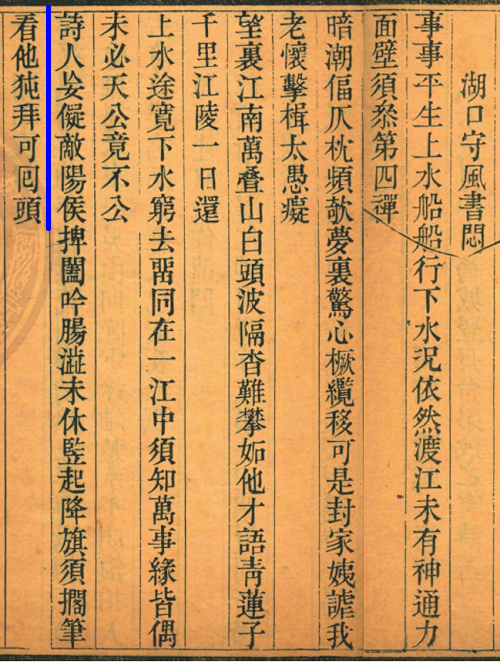 湖口守風書悶
事事平生上水船船行下水況依然渡江未有神通力
面壁須叅第四禪
暗潮偪仄枕頻欹夢裏驚心橛纜移可是封家姨謔我
老懷擊楫太愚癡
望裏江南萬叠山白頭波隔杳難攀如他才語靑蓮子
千里江陵一日還
上水途寬下水窮去畱同在一江中須知萬事緣皆偶
未必天公竟不公
詩人妄儗敵陽侯捭闔吟腸澁未休竪起降旗須擱筆
看他㹠拜可囘頭